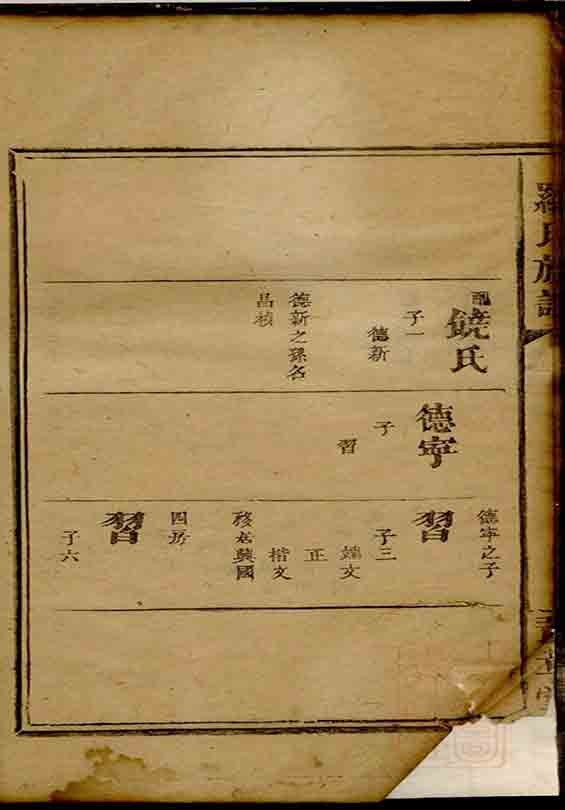 羅氏族譜
配饒氏
子一
德新
德新之孫名
昌禎
德寧
子
習
德寧之子
習
子三
端文
正
楷文
移居興國
四房
習
子六